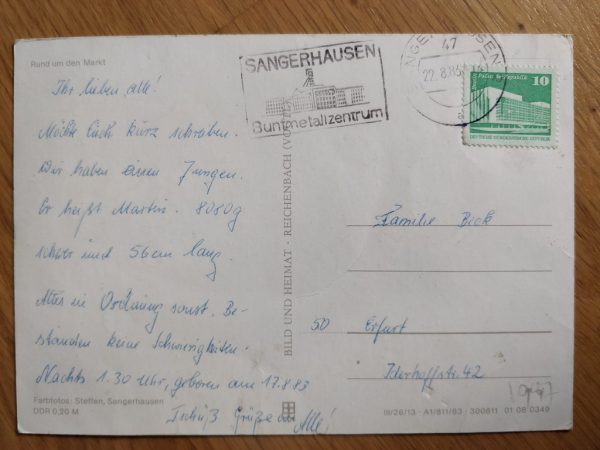 Rund um den Markt
Ihr lieben alle!
Möchte Euch kurz schreiben.
Wir haben einen Jungen.
Er heißt Martin. 8080g
schwer und 56cm lang.
Alles in Ordnung sonst. Be-
standen keine Schwierigkeiten.
Nachts 1.30 Uhr, geboren am 17.8.83
Tschüß Grüße an Alle!
Farbfotos: Steffen, Sangerhausen
DDR 0,20 M
BILD UND HEIMAT · REICHENBACH (VOGTL)
SANGERHAUSEN
Buntmetallzentrum
47
22.8.83
10
DEUTSCHE DEMOKRATISCHE REPUBLIK
Familie Bock
50 Erfurt
42
III/26/13 · A1/811/83 · 300811 01 08 0349